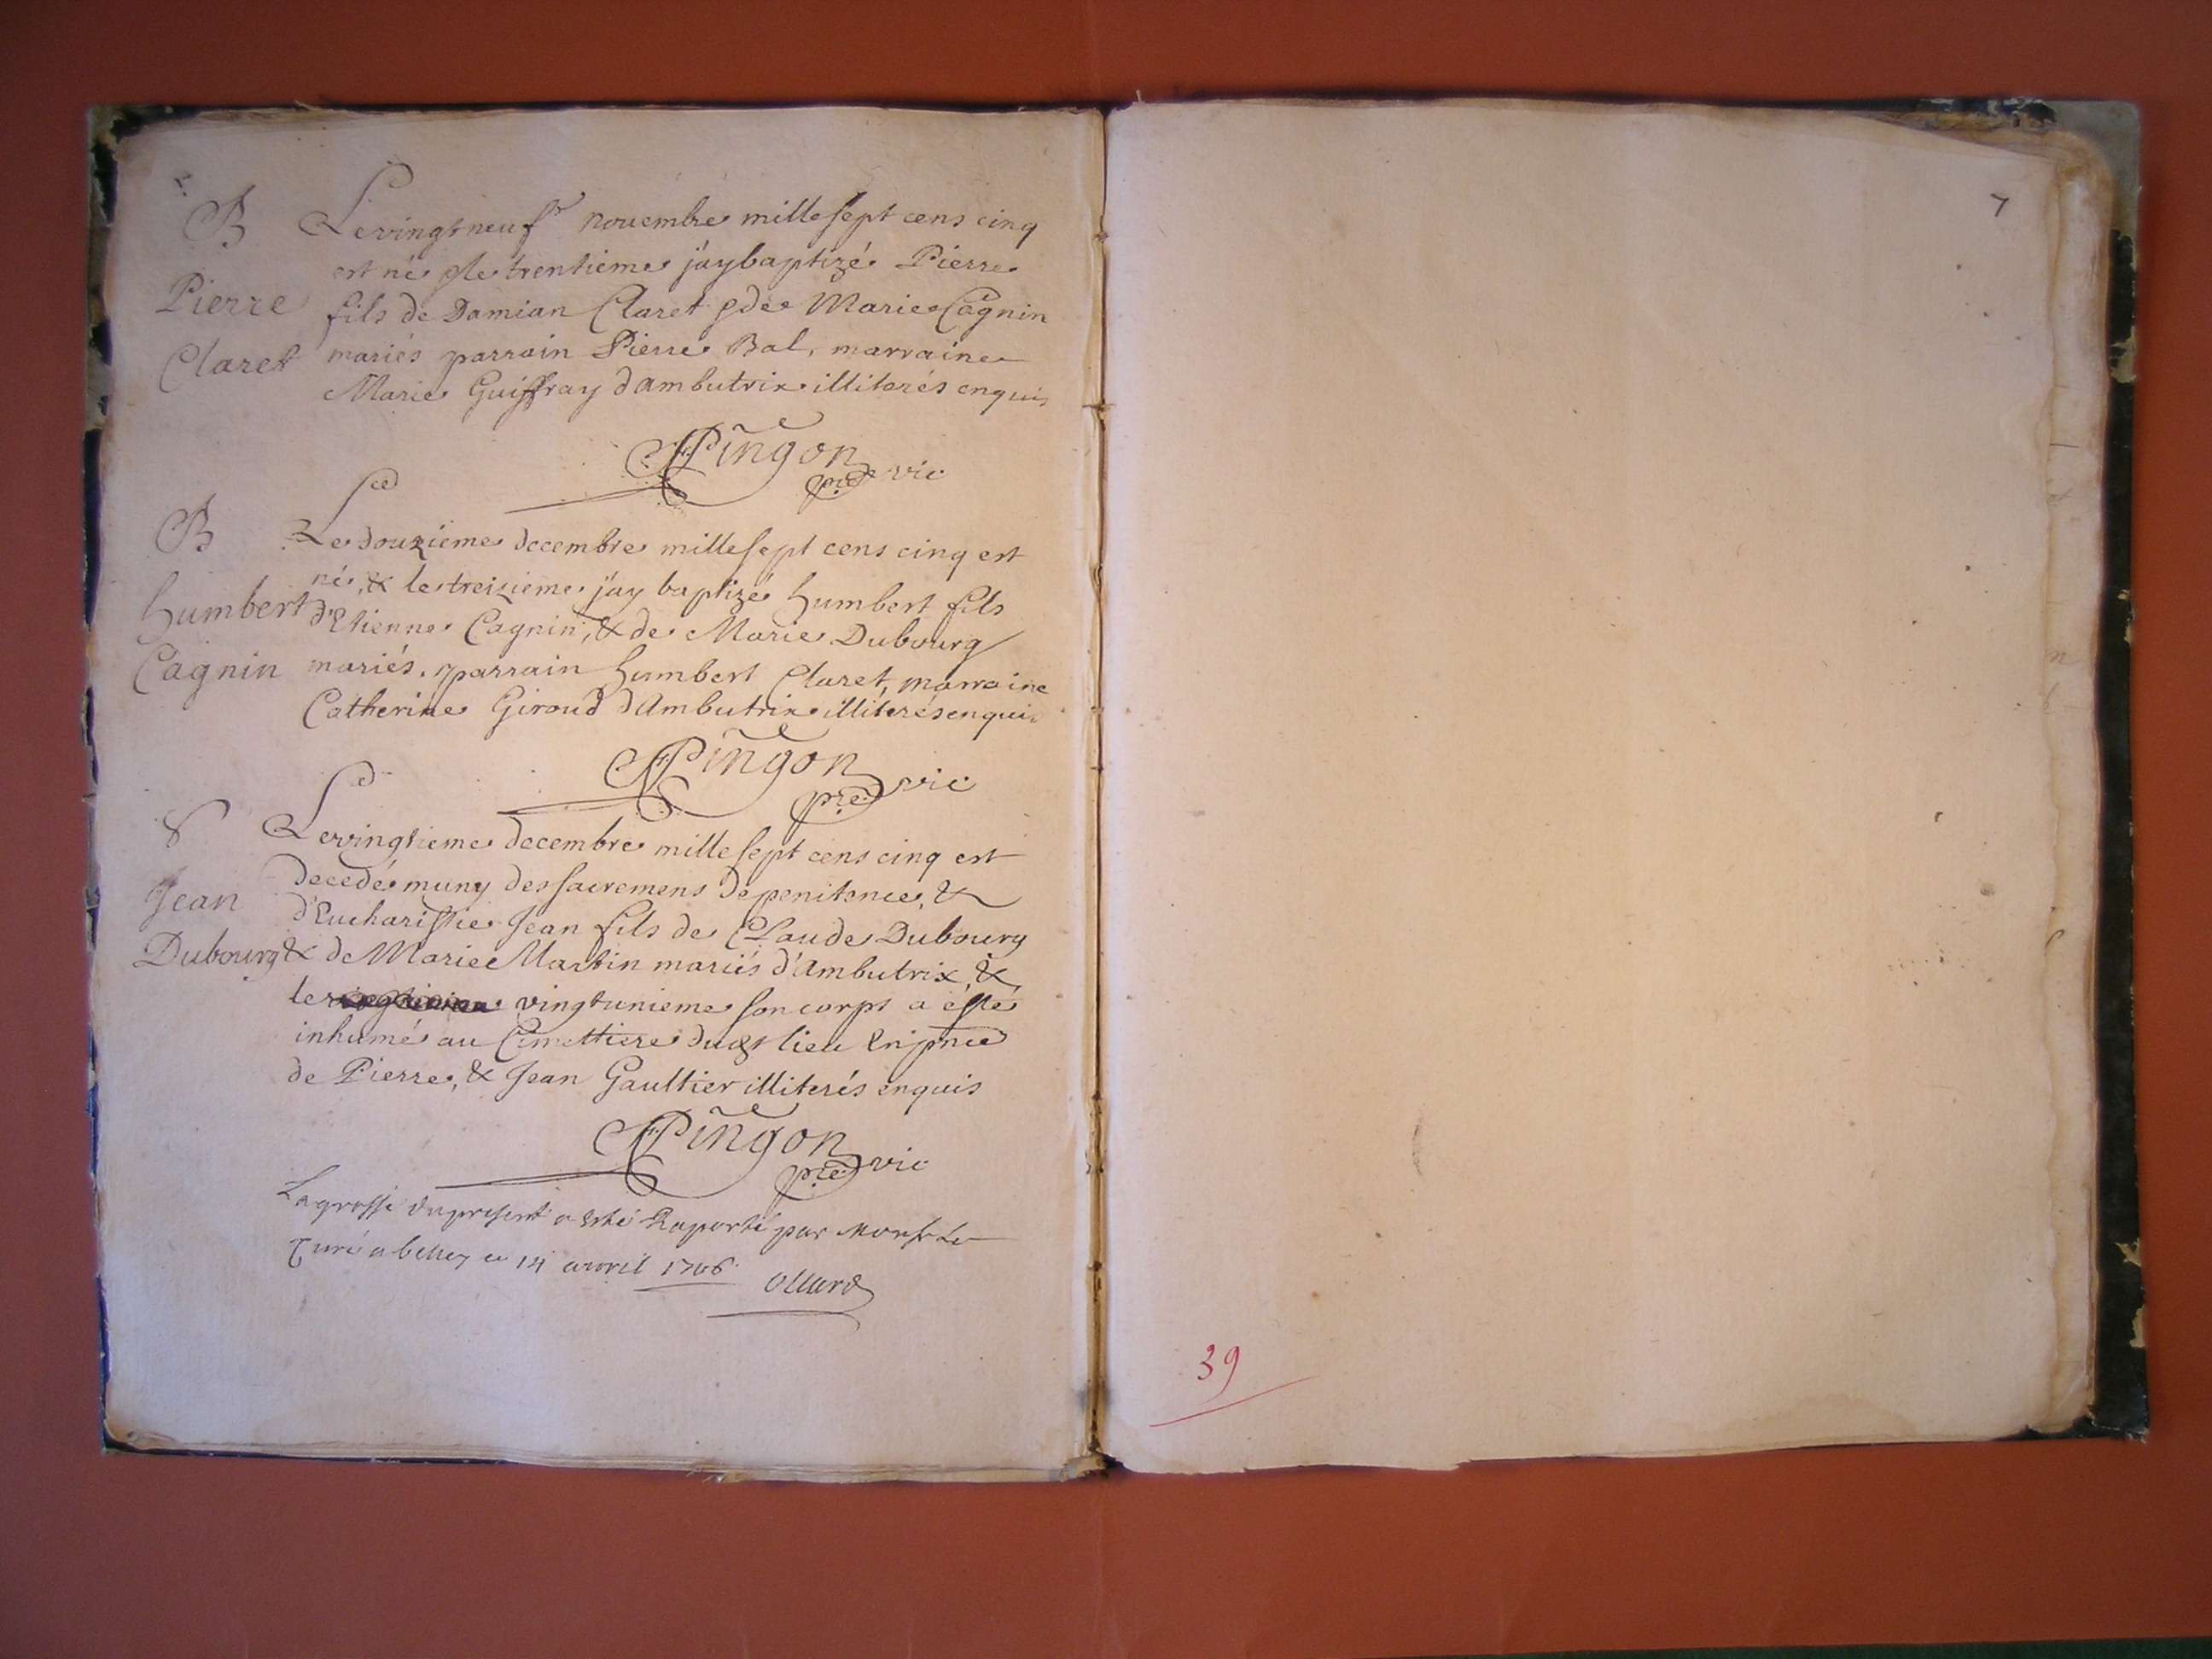 B
Pierre
Claret
Le vingt neuf novembre mille sept cens cinq
est né & le trentieme j'ay baptizé Pierre
fils de Damian Claret & de Marie Cagnin
mariés parrain Pierre Bal, marraine
Marie Guiffray d'ambutrix illiterés enquis
Pingon
pre vic
B
Humbert
Cagnin
Le douzieme decembre mille sept cens cinq est
né, & le treizieme j'ay baptizé humbert fils
d'Etienne Cagnin, & de Marie Dubourg
mariés, parrain humbert Claret, marraine
Catherine Giroud d'Ambutrix illiterés enquis
Pingon
pre vic
S
Jean
Dubourg
Le vingtieme decembre mille sept cens cinq est
decedé muny des sacremens de penitence, &
d'Eucharistie Jean fils de Claude Dubourg
& de Marie Martin mariés d'Ambutrix, &
le vingtunieme son corps a esté
inhumé au Cimettiere dudt lieu en pnce
de Pierre, & Jean Gaultier illiterés enquis
Pingon
pre vic
La grosse du present a esté Raporté par Monsr Le
Curé a belley ce 14 avvril 1706
Ollard
7
39